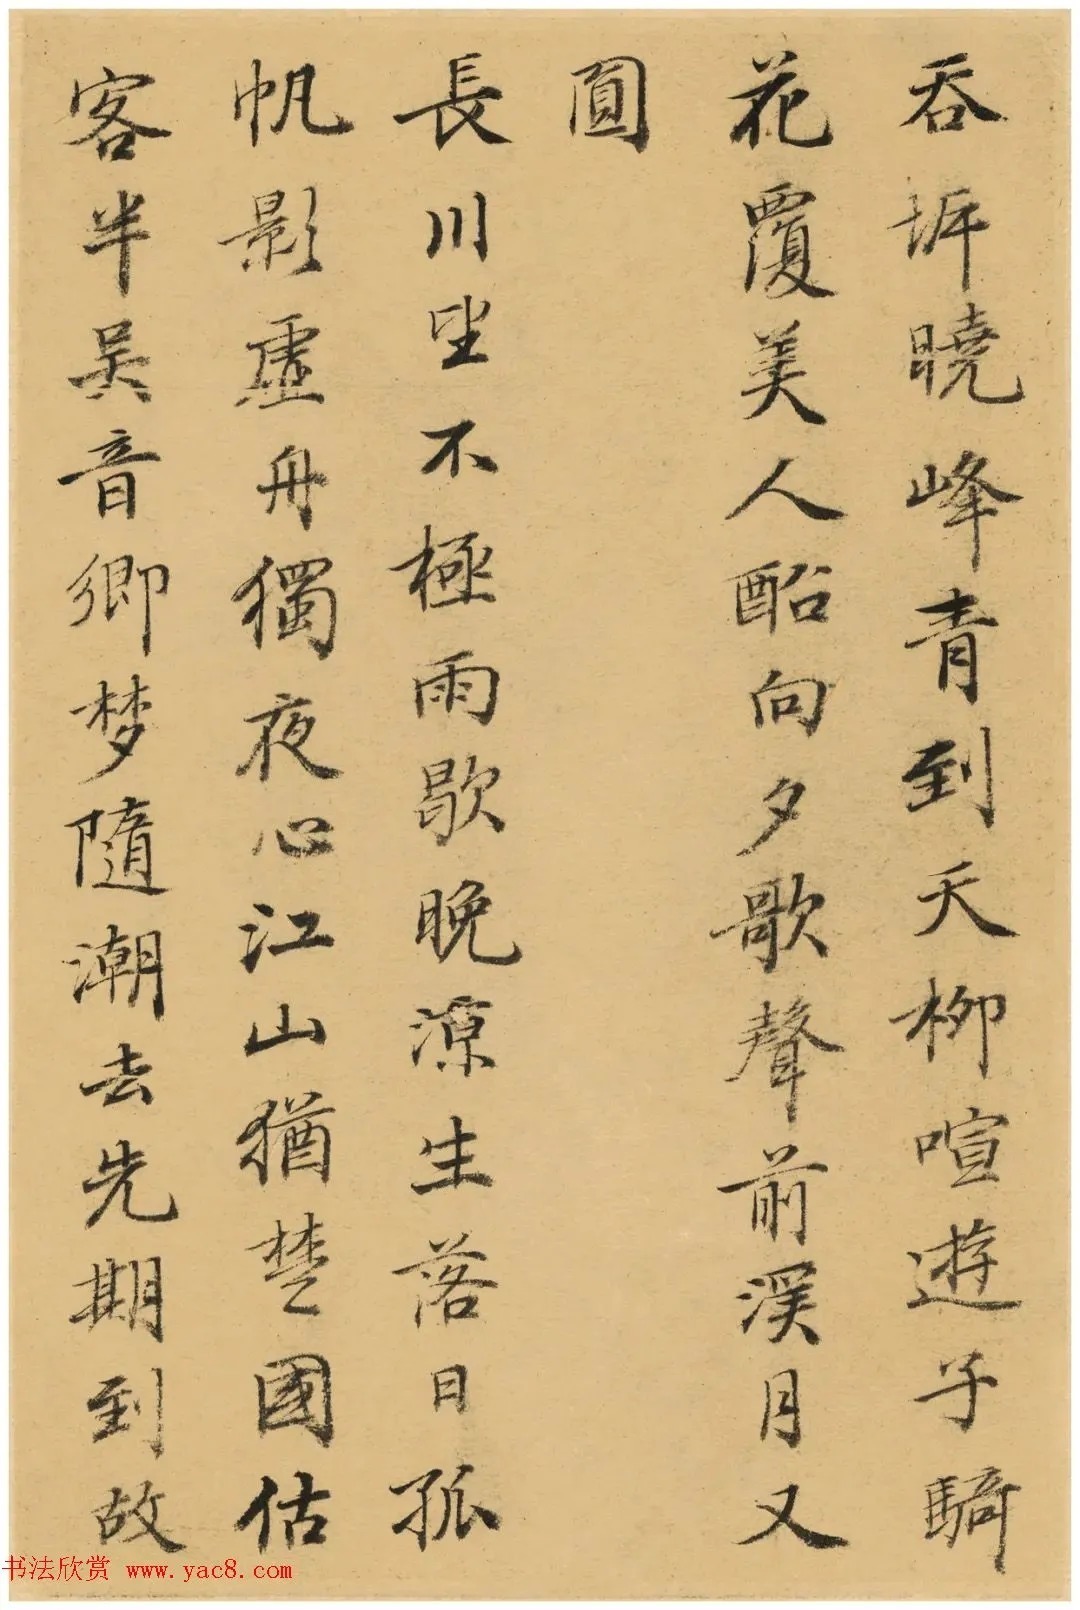 吞坼曉峰青到天柳喧遊子騎
花覆美人酩向夕歌聲前溪月又
圓
長川坐不極雨歇晚涼生落日孤
帆影虛舟獨夜心江山猶楚國估
客半吴音鄉梦隨潮去先期到故
书法欣赏 www.yac8.com